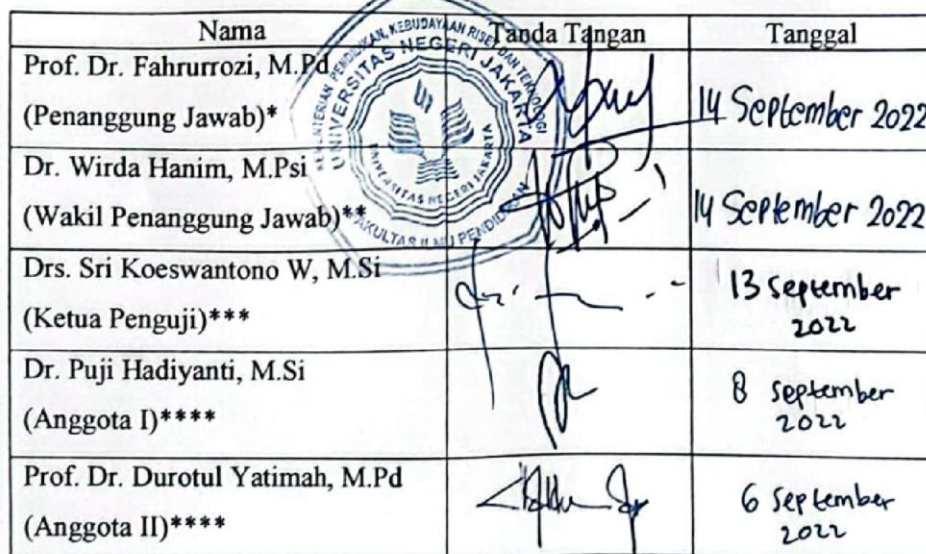 Nama Tanda Tangan Tanggal
Prof. Dr. Fahrurrozi, M.Pd
(Penanggung Jawab)* 14 September 2022
Dr. Wirda Hanim, M.Psi
(Wakil Penanggung Jawab)** 14 September 2022
Drs. Sri Koeswantono W, M.Si
(Ketua Penguji)*** 13 September
2022
Dr. Puji Hadiyanti, M.Si
(Anggota I)**** 8 September
2022
Prof. Dr. Durotul Yatimah, M.Pd
(Anggota II)**** 6 September
2022
KEBUDAYAAN RISET DAN TEKNOLOGI
UNIVERSITAS NEGERI JAKARTA
UNIVERSITAS NEGERI JAKARTA
FAKULTAS ILMU PENDIDIKAN